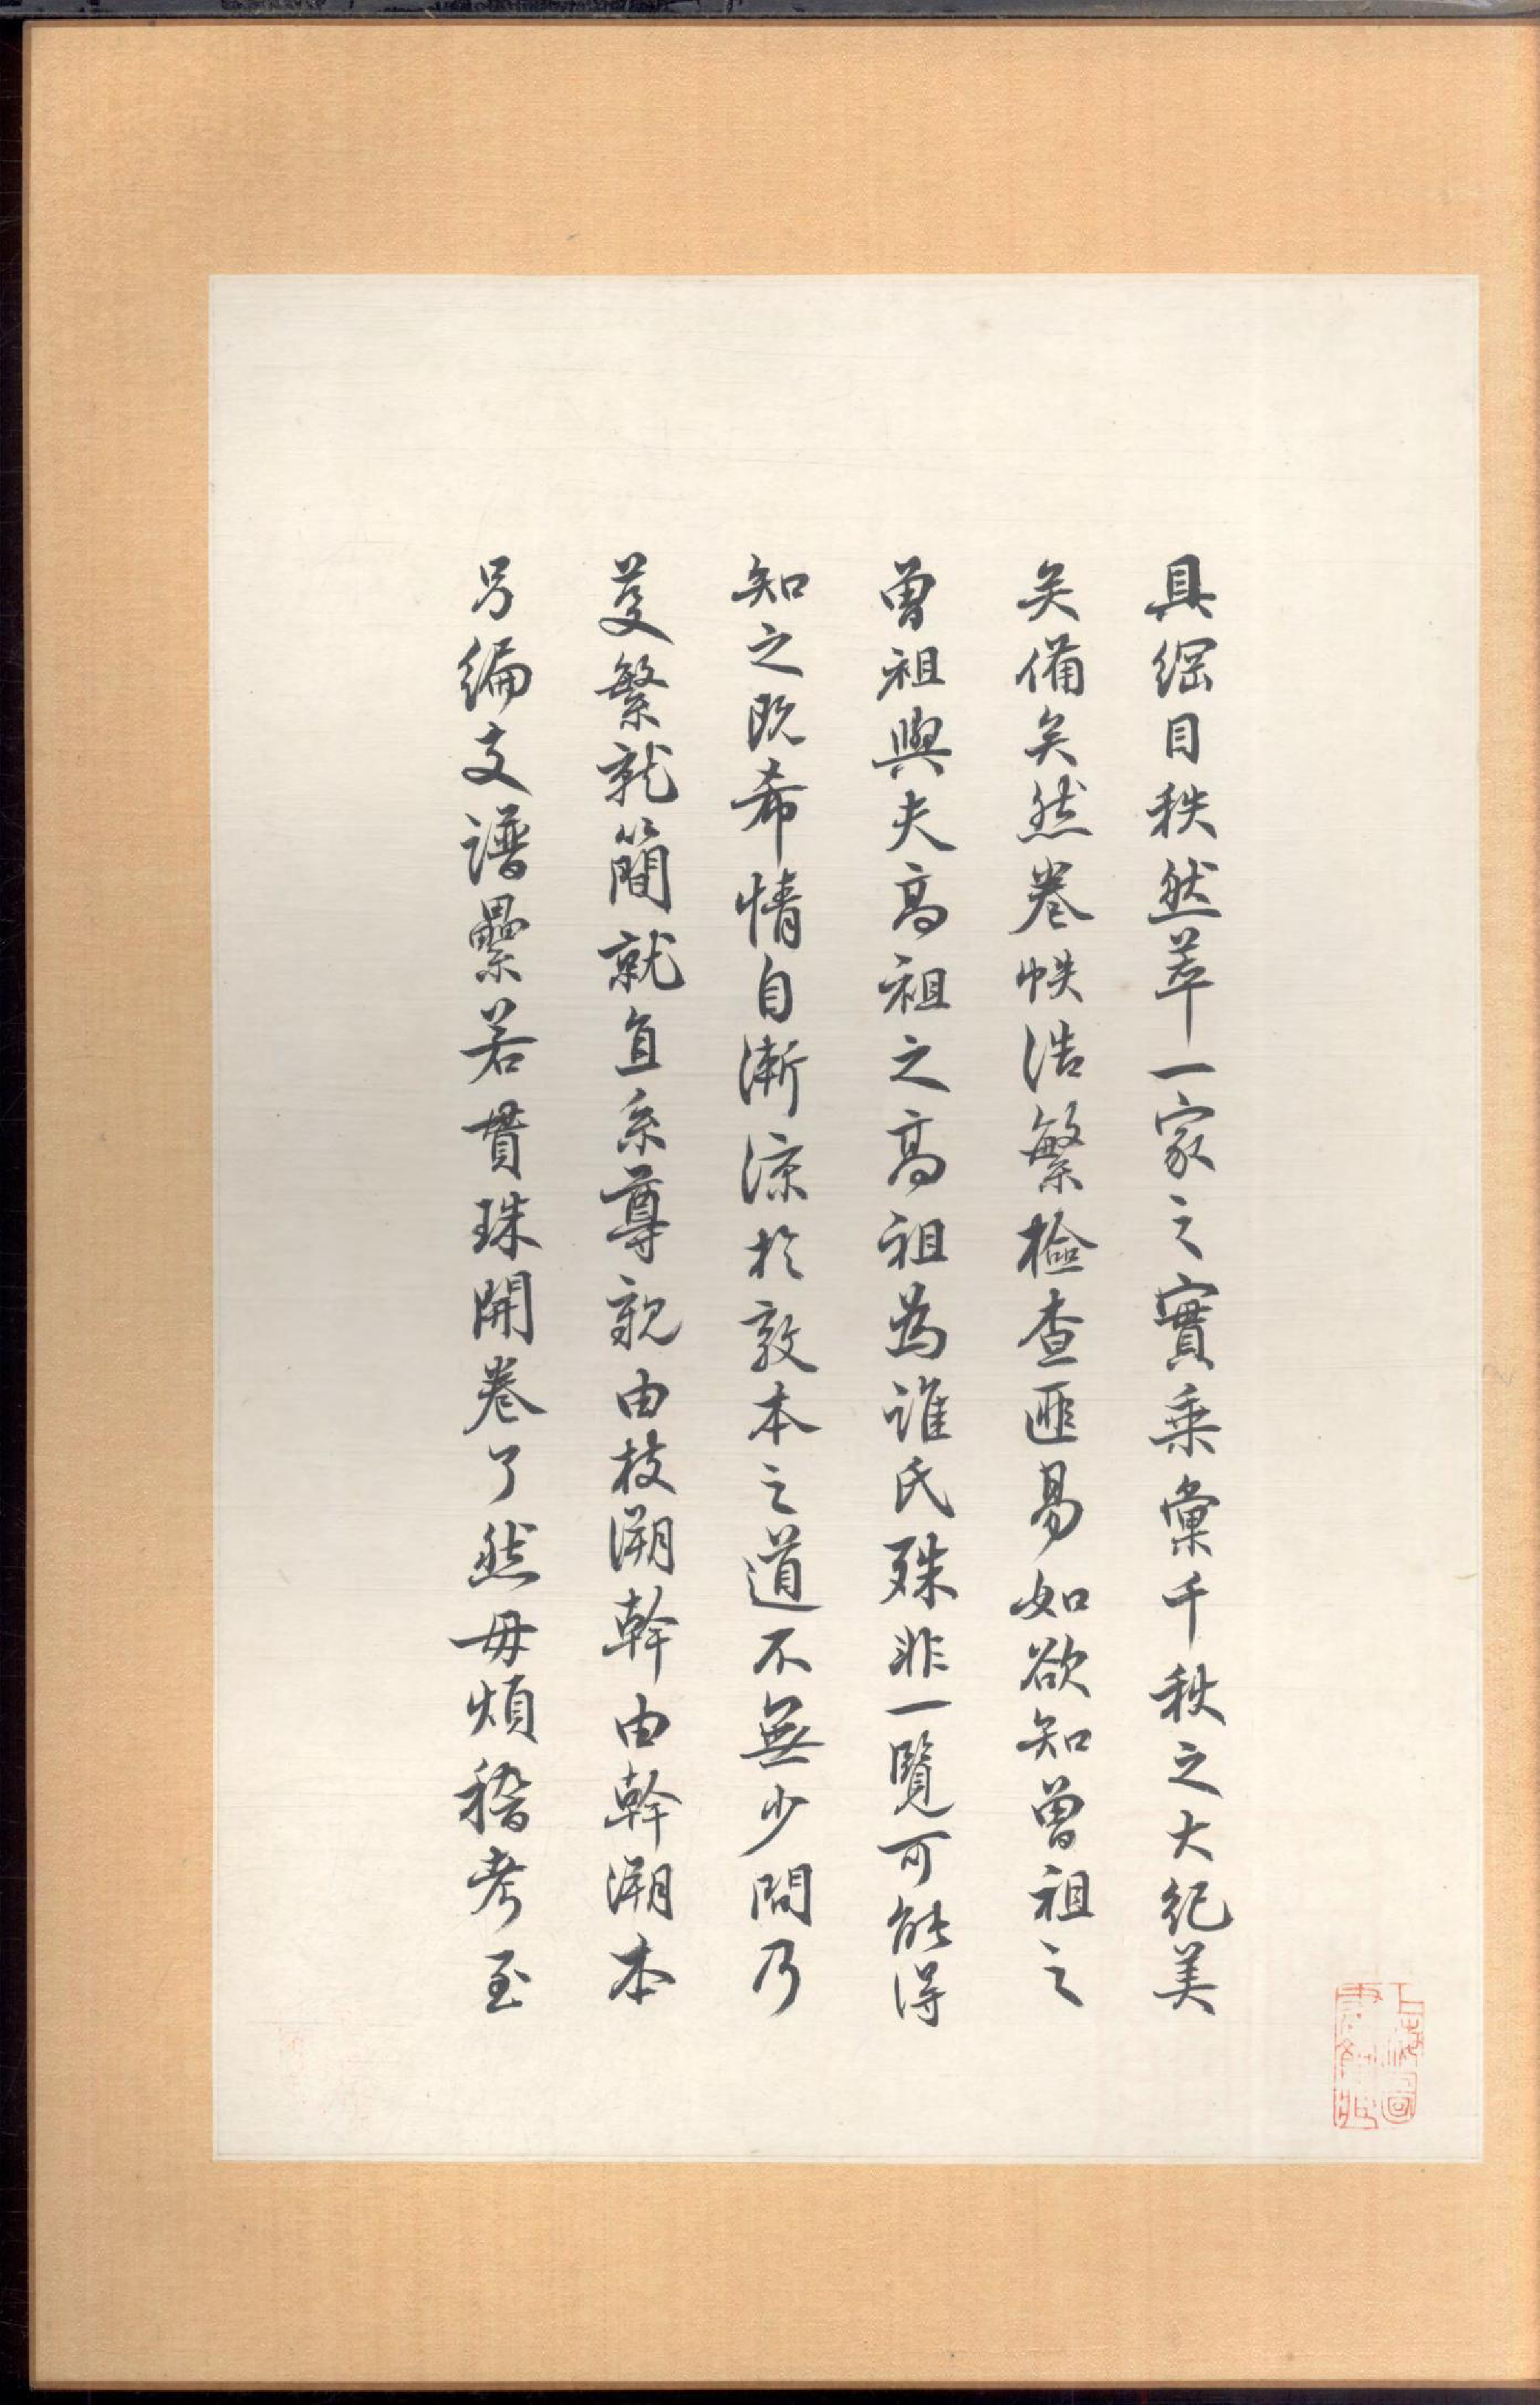 具綱目秩然萃一家之實乗彙千秩之大紀美
矣備矣然卷帙浩繁檢查匪易如欲知曾祖之
曾祖與夫高祖之高祖為誰氏殊非一覽可能得
知之既希情自漸涼於敦本之道不無少間乃
芟繁就簡就直系尊親由枝溯幹由幹溯本
另編支譜纍若貫珠開卷了然毋煩稽考至
上海圖書館藏